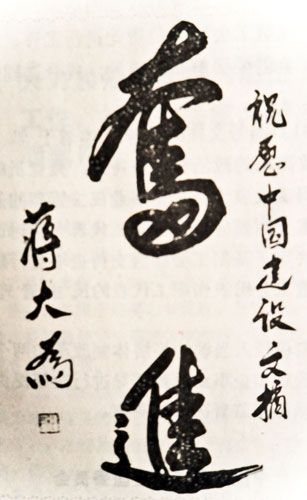 祝愿中国建设文摘
奮進
蒋大為